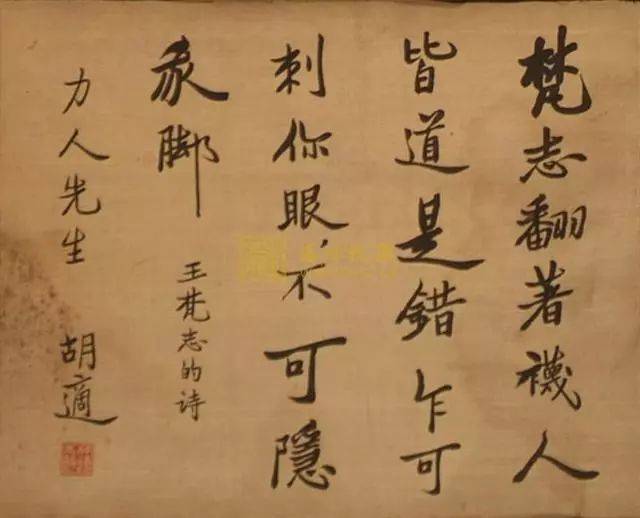 梵志翻著襪人
皆道是錯乍可
刺你眼，不可隱
我脚
王梵志的诗
力人先生
胡適